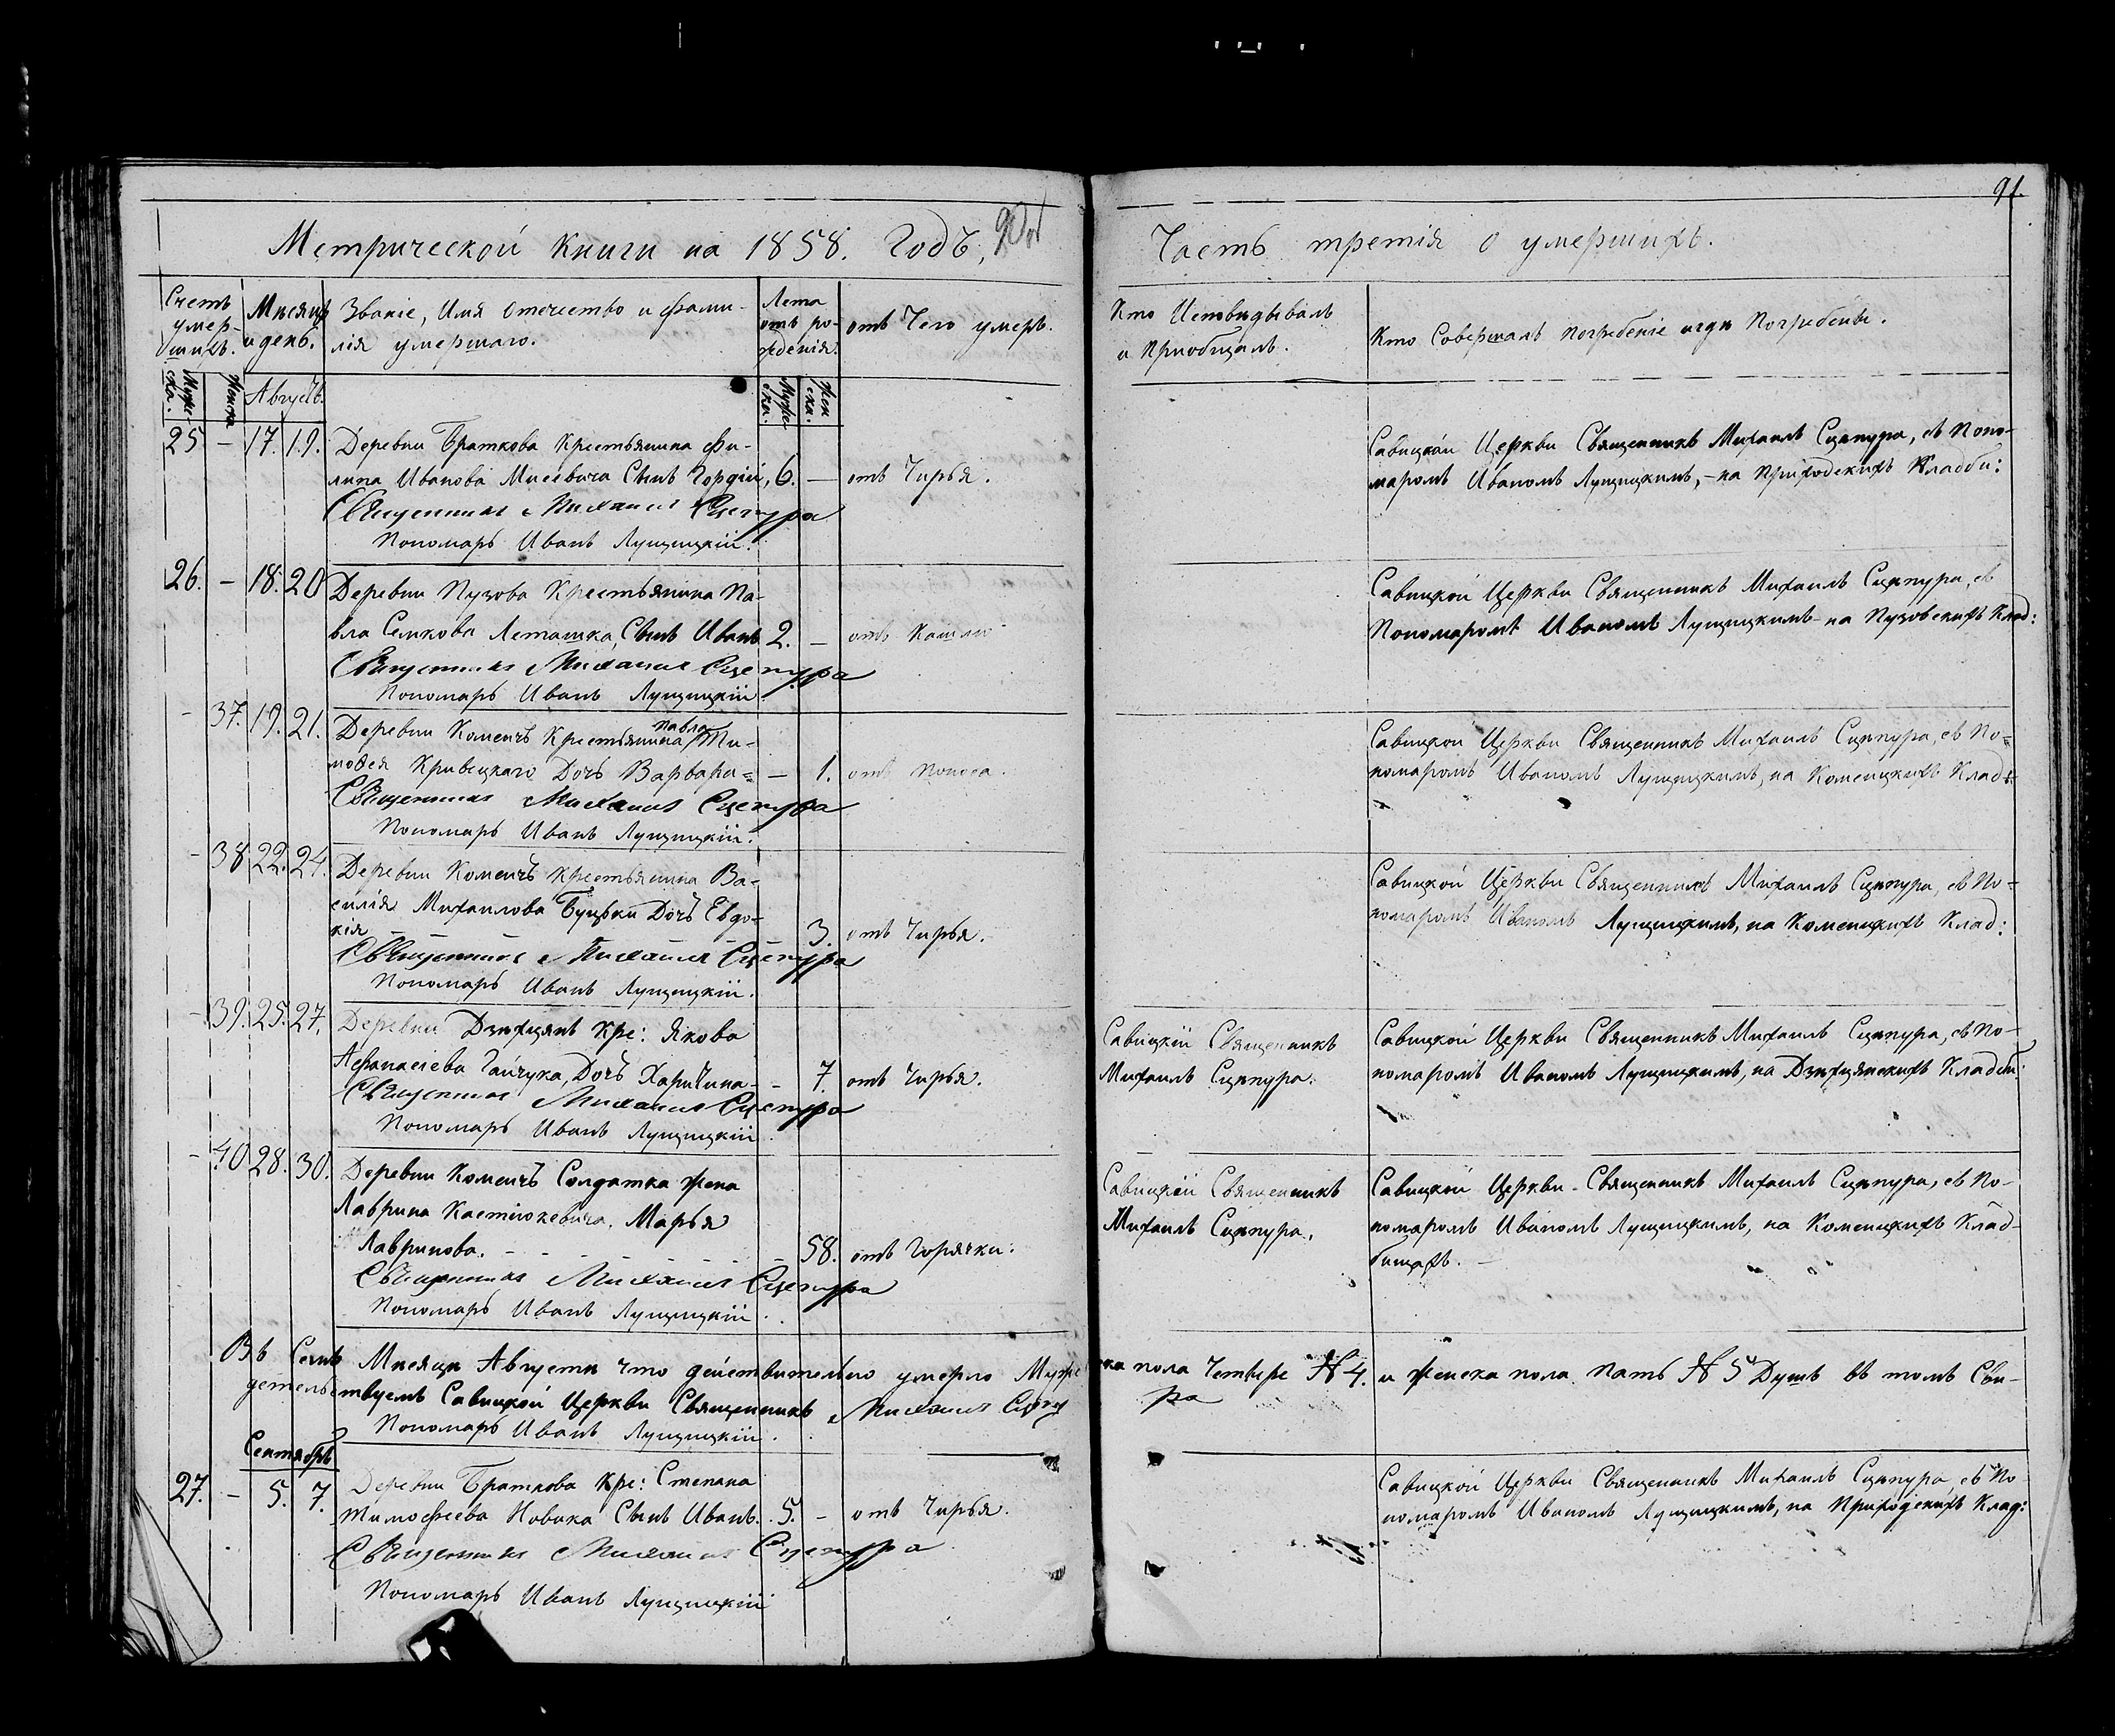 91.
Метрической Книги на 1858. Годъ,
Часть третія о умершихъ.
Счетъ умер-шихъ.
Мѣсяцъ и день.
Званіе, Имя отчество и фами-
лія умершаго.
Лета отъ ро-жденія.
отъ Чего умеръ.
Кто Исповидывалъ
и Приобщалъ.
Кто Совершалъ Погребеніе и гдѣ Погребены.
Муже ска.
Женска
Августъ.
Муже ска.
Жен ска.
25 – 17. 19. Деревни Браткова Крестьянина Фи-
липа Иванова Мисевича Сынъ Гордій, 6. – отъ Чирья.
Савицкой Церкви Священникъ Михаилъ Сцепура, съ Поно-
маромъ Иваномъ Лущицкимъ, – на Приходскихъ Кладби:
Священникъ Михаилъ Сцепура
Пономарь Иванъ Лущицкій.
26. – 18. 20 Деревни Пузова Крестьянина Па-
вла Семкова Леташка, Сынъ Иванъ 2. – отъ Кашлю
Савицкой Церкви Священникъ Михаилъ Сцепура, съ
Пономаромъ Иваномъ Лущицкимъ – на Пузовскихъ Клад:
Священникъ Михаилъ Сцепура
Пономарь Иванъ Лущицкій
– 37. 19. 21. Деревни Коменъ Крестьянина Павла Ти-
мофея Кривецкаго Дочь Варвара – 1. отъ поноса.
Савицкой Церкви Священникъ Михаилъ Сцепура, съ По-
номаромъ Иваномъ Лущицкимъ, на Коменскихъ Клад:
Священникъ Михаилъ Сцепура
Пономарь Иванъ Лущицкій.
– 38 22. 24. Деревни Коменъ Крестьянина Ва-
силія Михаилова Буцьки Дочь Евдо-
кія 3. отъ Чирья.
Савицкой Церкви Священникъ Михаилъ Сцепура, съ По-
номаромъ Иваномъ Лущицкимъ, на Коменскихъ Клад:
Священникъ Михаилъ Сцепура
Пономарь Иванъ Лущицкій.
– 39. 25. 27. Деревни Дзѣхцянъ Кре: Якова
Афанасіева Гайчука, Дочь Харитина – 7. отъ Чирья.
Савицкій Священникъ
Михаилъ Сцепура.
Савицкой Церкви Священникъ Михаилъ Сцепура, съ По-
номаромъ Иваномъ Лущицкимъ, на Дзѣхцянскихъ Кладби:
Священникъ Михаилъ Сцепура
Пономарь Иванъ Лущицкій
– 40 28. 30. Деревни Коменъ Солдатка жена
Лаврина Кастюкевича. Марья
Лавринова. – 58. отъ Горячки.
Савицкій Священникъ
Михаилъ Сцепура.
Савицкой Церкви Священникъ Михаилъ Сцепура, съ По-
номаромъ Иваномъ Лущицкимъ, на Коменскихъ Клад-
бищахъ.
Священникъ Михаилъ Сцепура
Пономарь Иванъ Лущицкій.
Въ Семъ Мѣсяцѣ Августѣ что действительно умерло Муже ска пола Четыре № 4. и Женска пола Пять № 5 Душъ въ томъ Сви-
детельствуемъ Савицкой Церкви Священникъ Михаилъ Сцепура
Пономарь Иванъ Лущицкій.
Сентябрь
27. – 5. 7. Деревни Браткова Кре: Степана
Тимофеева Новика Сынъ Иванъ. 5. – отъ Чирья.
Савицкой Церкви Священникъ Михаилъ Сцепура, съ По-
номаромъ Иваномъ Лущицкимъ, на Приходскихъ Клад:
Священникъ Михаилъ Сцепура
Пономарь Иванъ Лущицкій